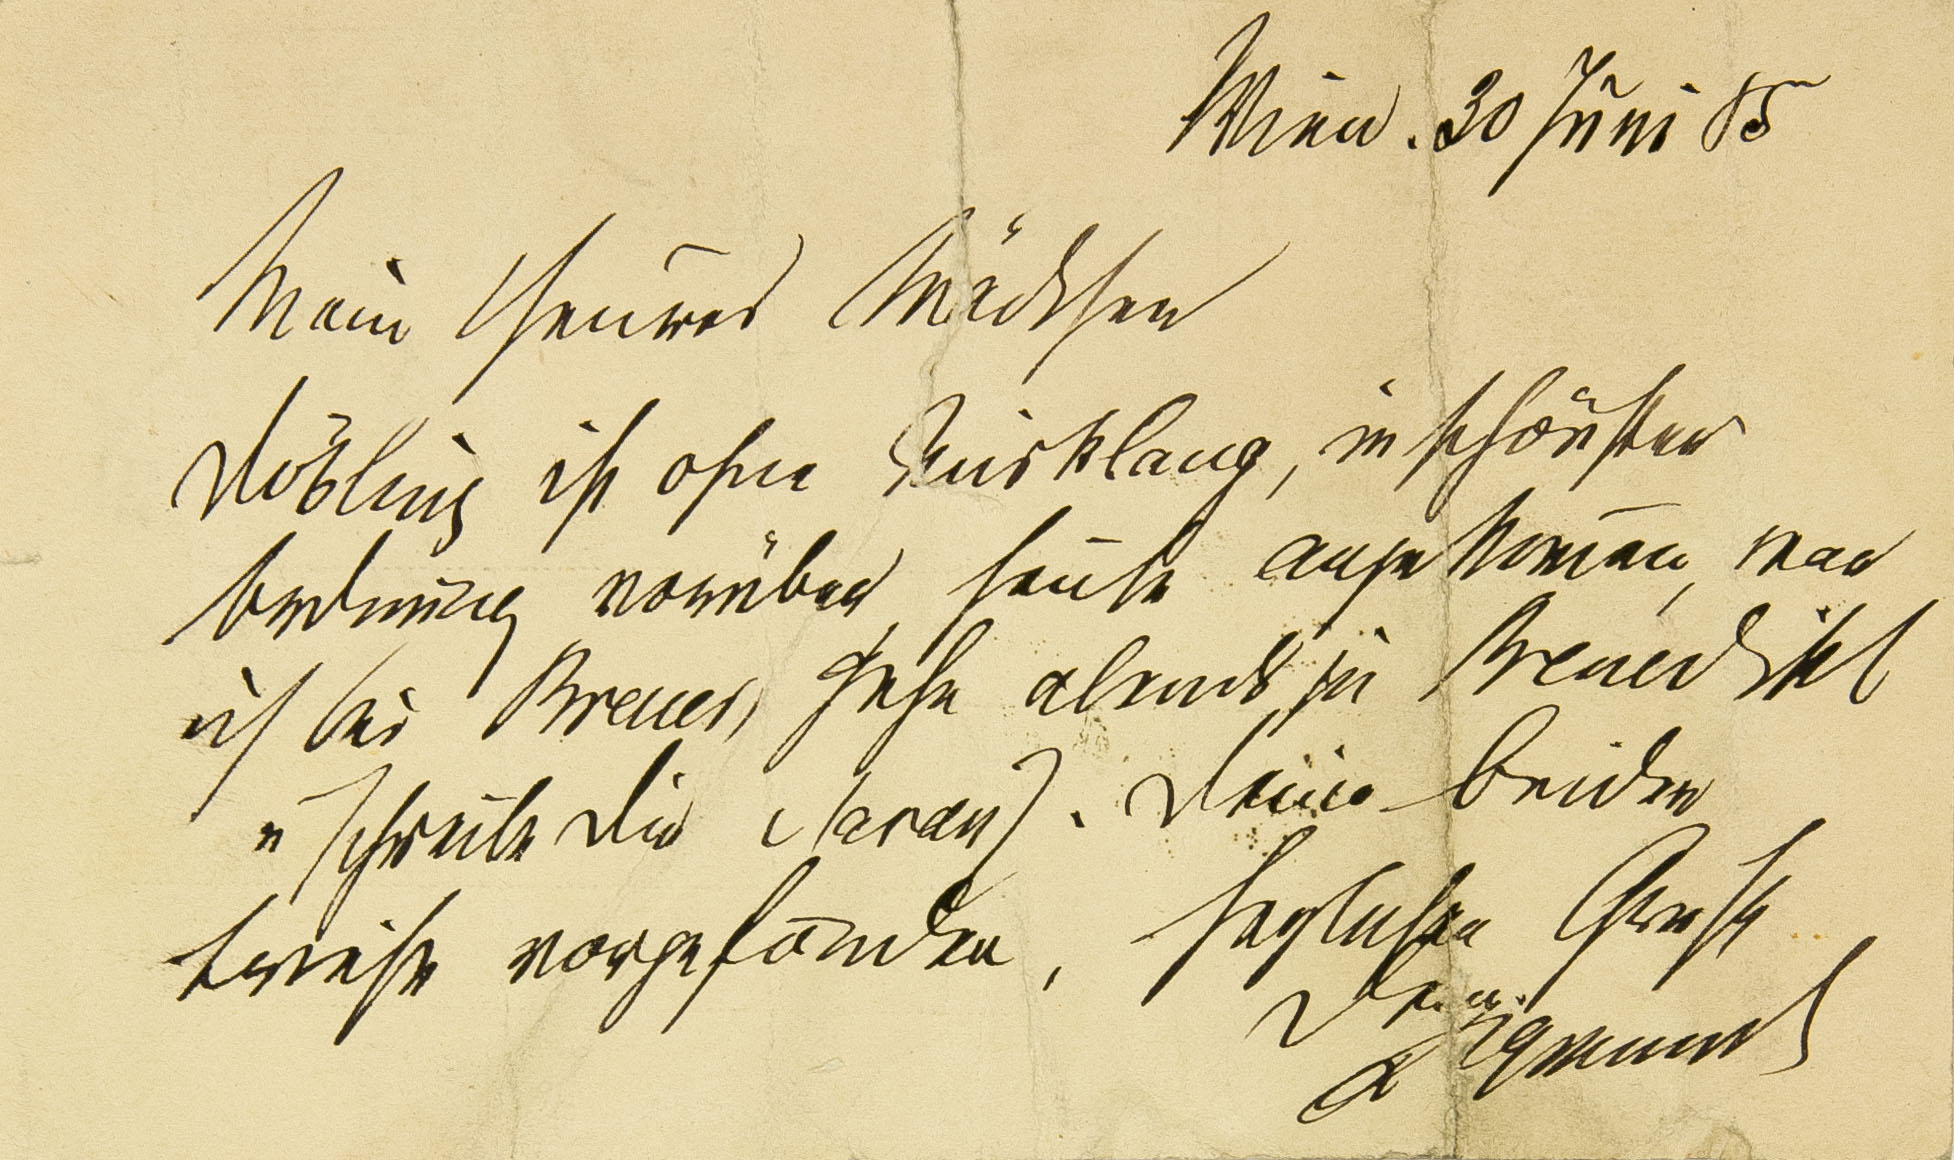 Wien. 30 Juni 85
Mein theures Mädchen
Döbling ist ohne Missklang, in schönster
Ordnung vorüber, heute angekommen, war
ich bei Breuer, gehe abends zu Benedikt
u schreibe Dir daran. Deine beiden
Briefe vorgefunden, herzlichen Gruß
Dein
Sigmund